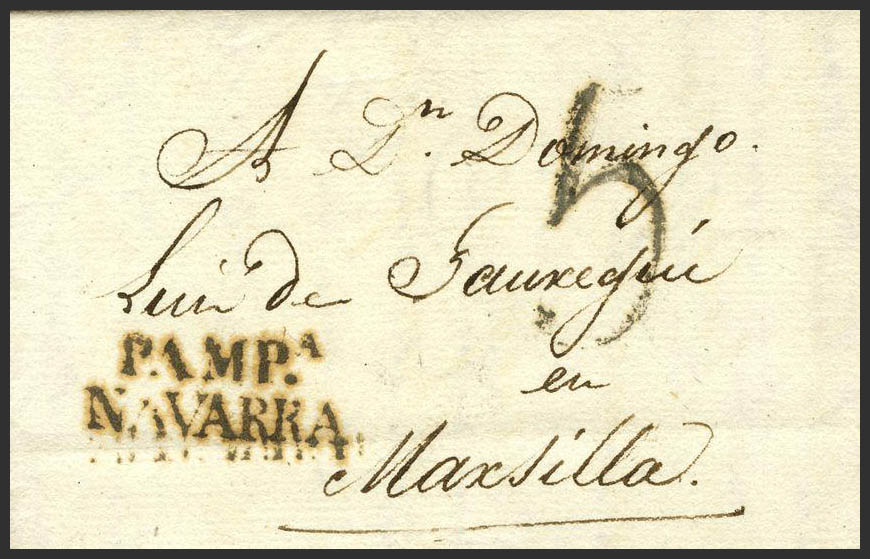 A Dn. Domingo.
Luis de Jaureguí
en
Marsilla.
5
PAMP.A
NAVARRA